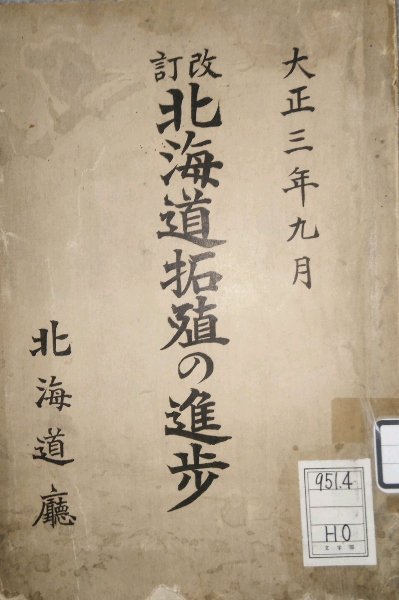 大正三年九月
改訂
北海道拓殖の進步
北海道廳
951.4
H0